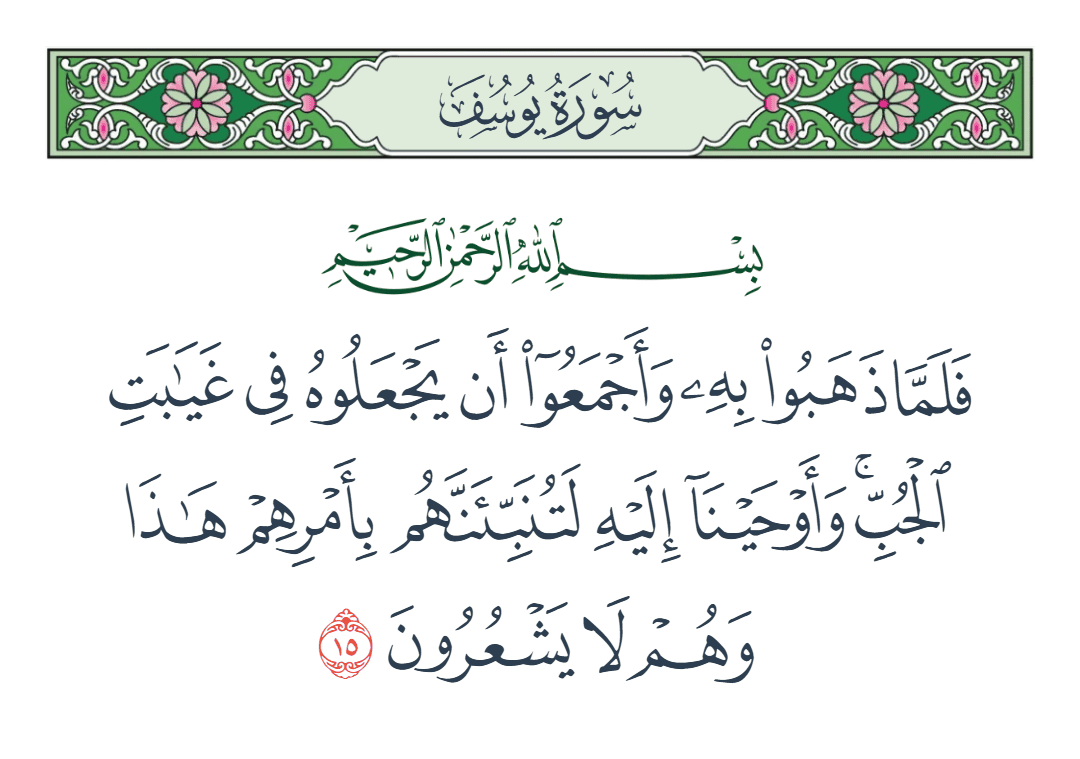 سُورَةُ يُوسُفَ
بِسْمِ ٱللَّهِ ٱلرَّحْمَٰنِ ٱلرَّحِيمِ
فَلَمَّا ذَهَبُوا۟ بِهِۦ وَأَجْمَعُوٓا۟ أَن يَجْعَلُوهُ فِى غَيَـٰبَتِ
ٱلْجُبِّ ۚ وَأَوْحَيْنَآ إِلَيْهِ لَتُنَبِّئَنَّهُم بِأَمْرِهِمْ هَـٰذَا
وَهُمْ لَا يَشْعُرُونَ ١٥